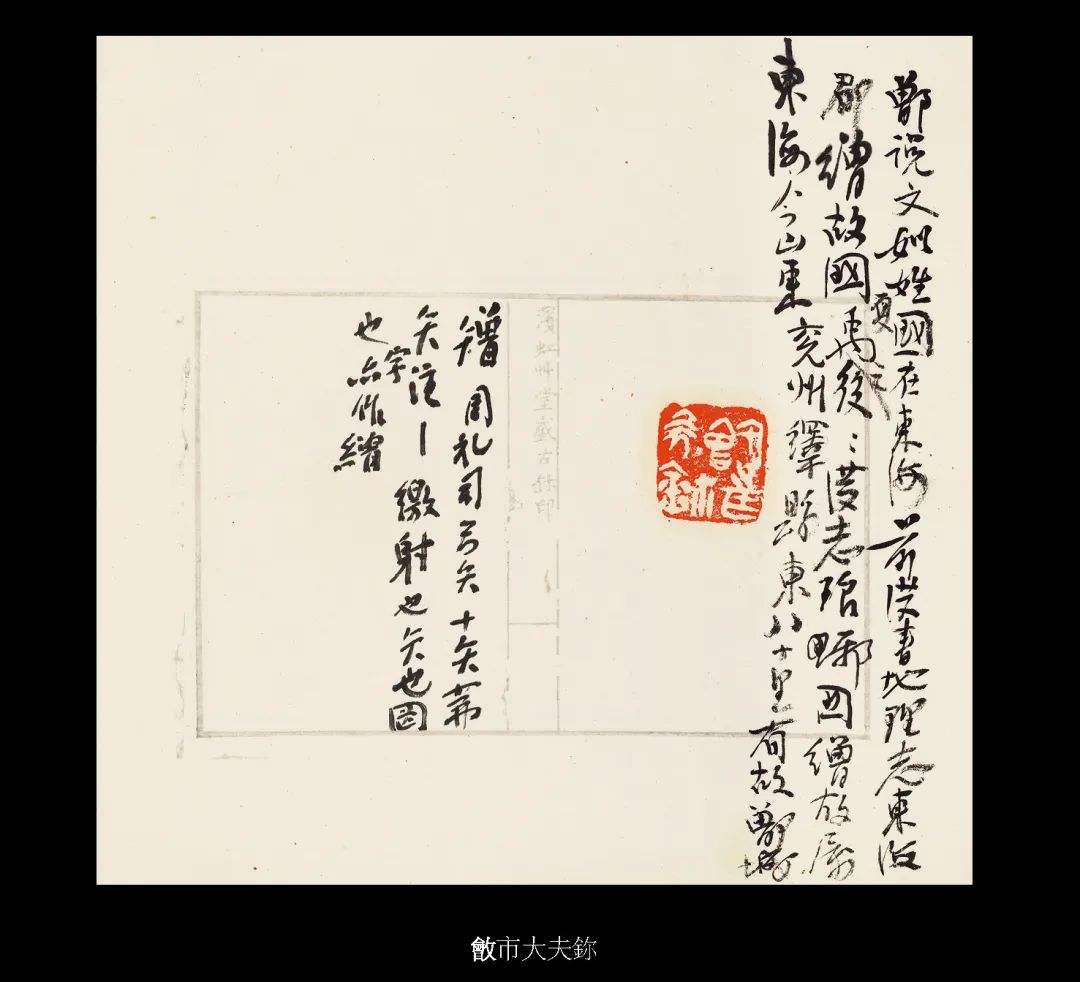 鄫说文姒姓國在東海前漢書地理志東海
郡繒故國禹後漢志琅邪国繒故屬
夏
東海今山東兖州嶧縣東八十里有故鄫城
濱虹艸堂藏古鉨印
矰周礼司弓矢十矢茀
矢注丨繳射也矢也國
字
也亦作繒
市大夫鉨